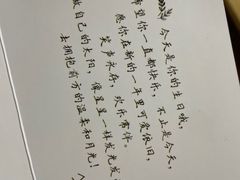 今天是你的生日哦，
希望你一直都快乐，不止是今天，
愿你在新的一年里可爱依旧，
笑声永存，欢乐常伴。
做自己的太阳，像星星一样发光发
去拥抱方的温柔和月光！